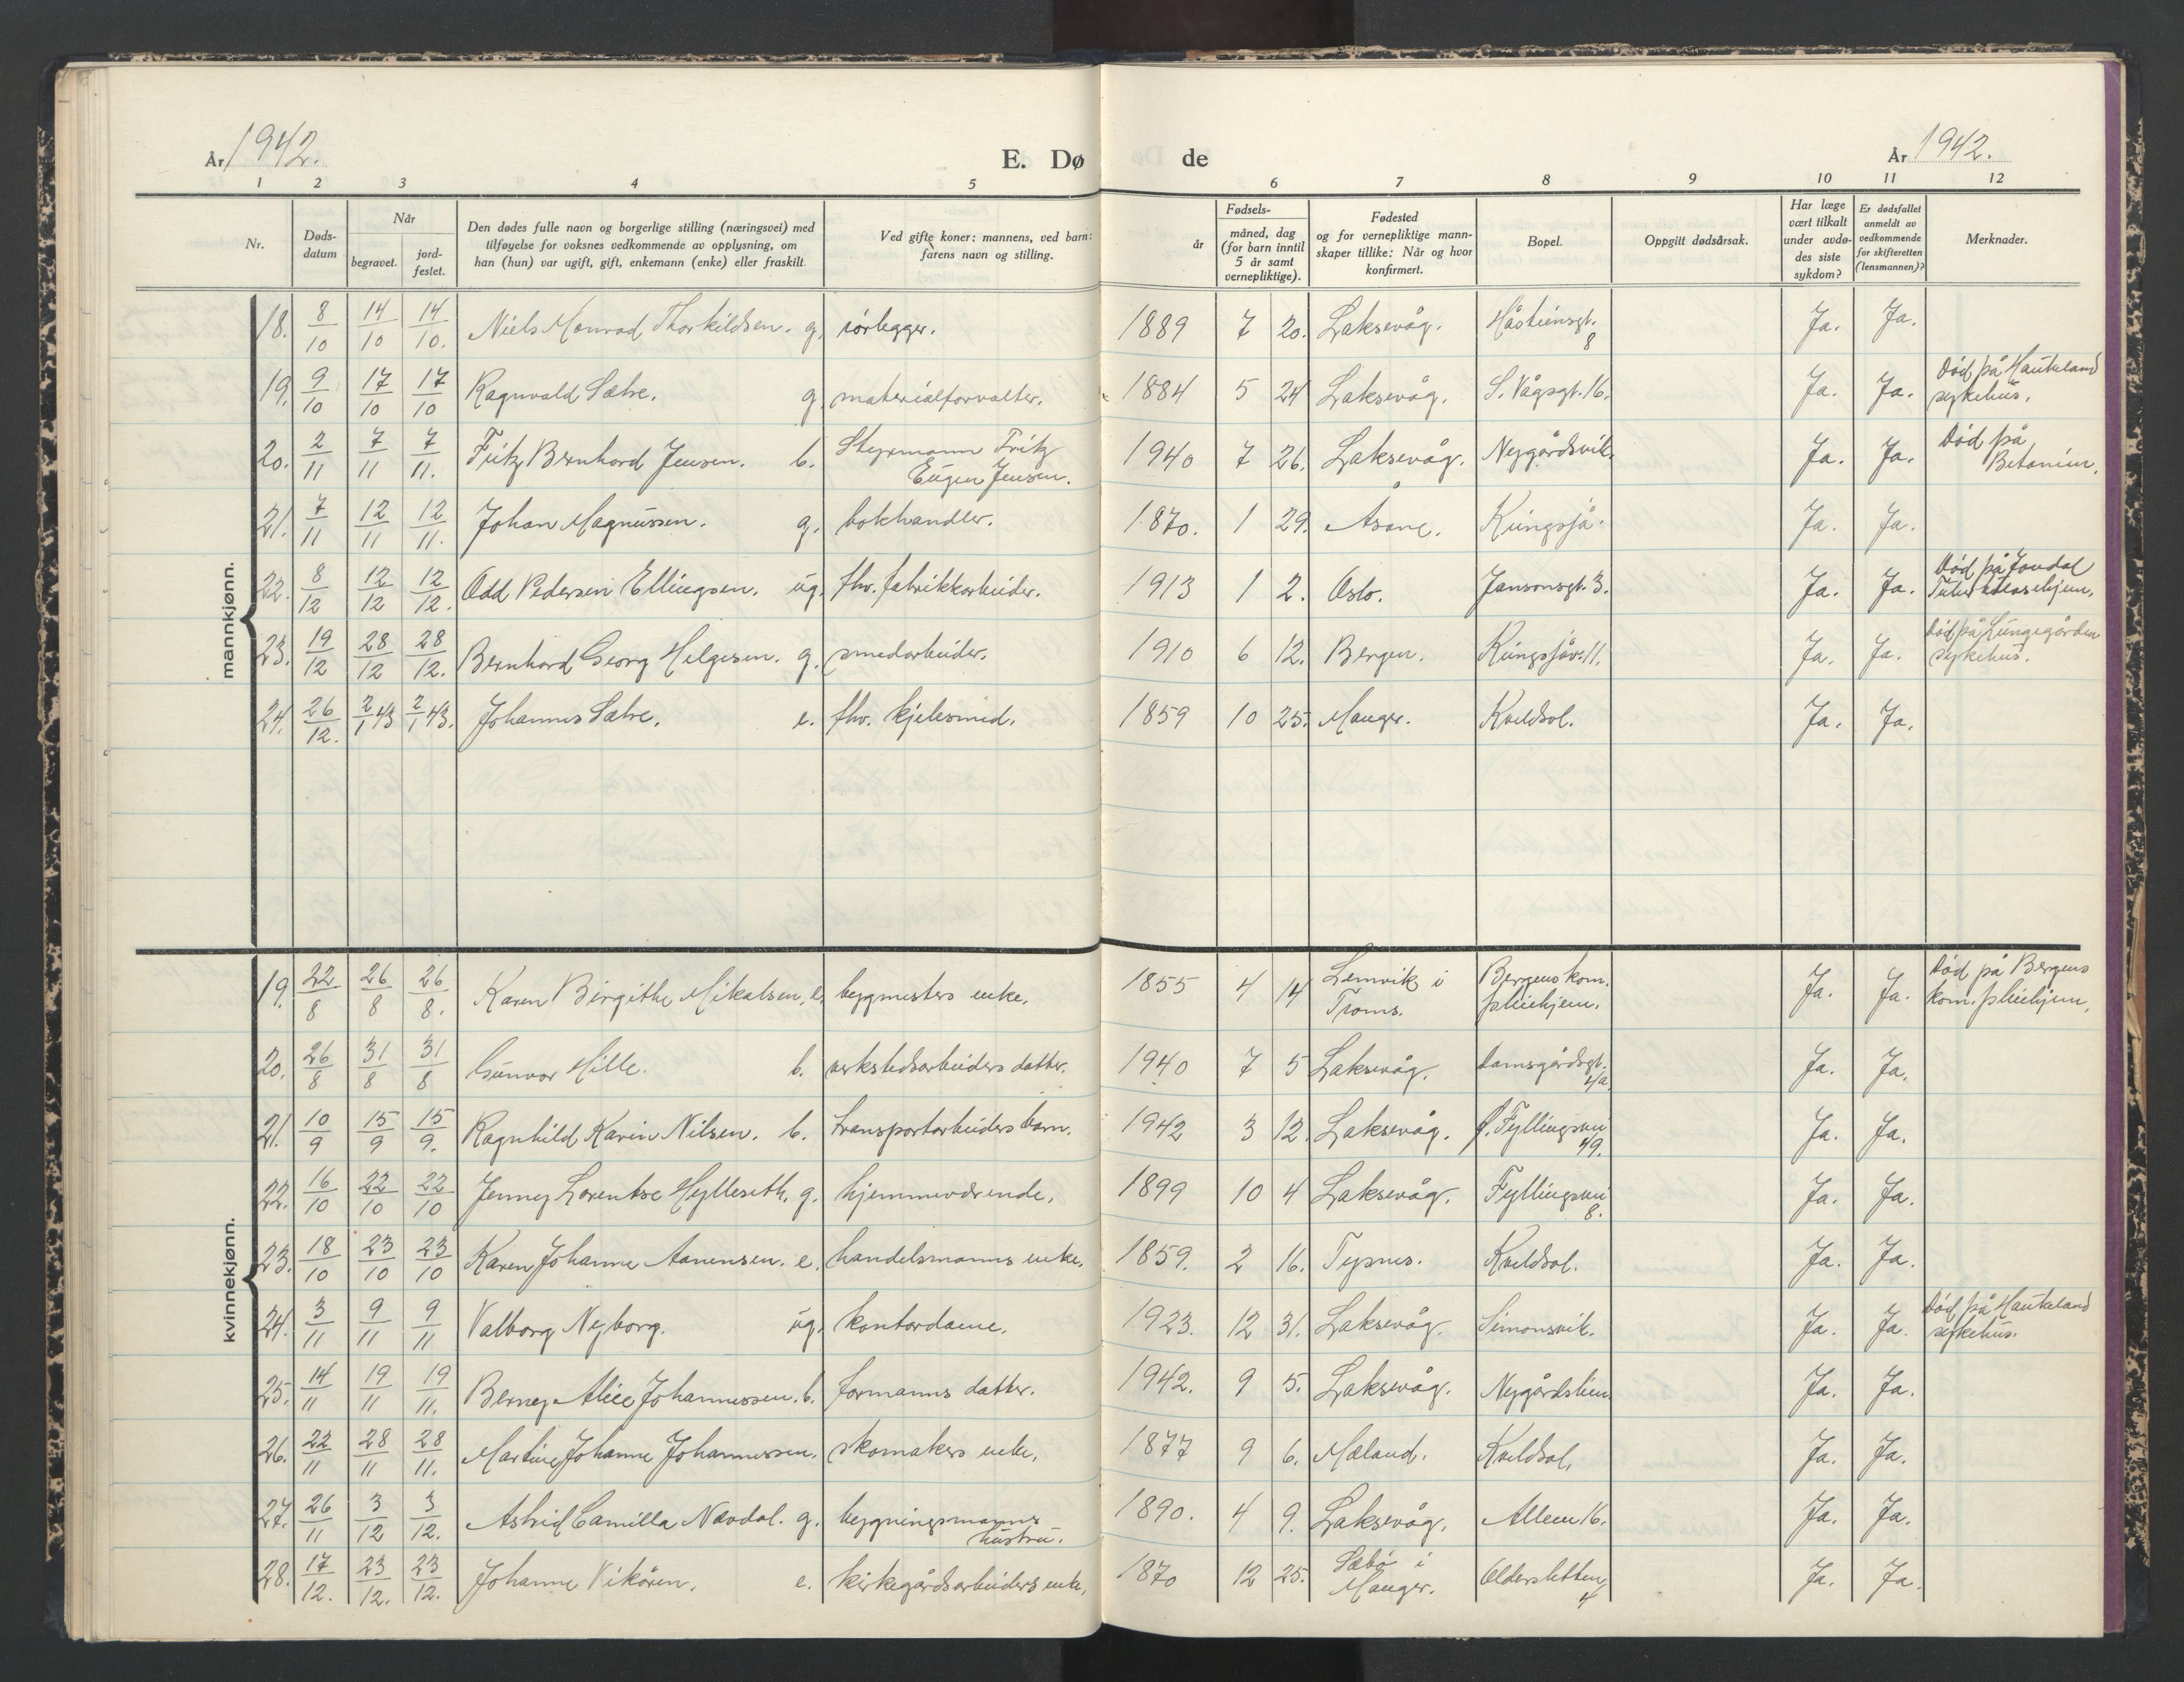 År 1942.
E. Dø de
År 1942.
1 2 3 4 5 6 7 8 9 10 11 12
Nr.
Døds-
datum
Når
begravet.
jord-
festet.
Den dødes fulle navn og borgerlige stilling (næringsvei) med
tilføyelse for voksnes vedkommende av opplysning, om
han (hun) var ugift, gift, enkemann (enke) eller fraskilt
Ved gifte koner: mannens, ved barn:
farens navn og stilling.
Fødsels-
år
måned, dag
(for barn inntil
5 år samt
vernepliktige).
Fødested
og for vernepliktige mann-
skaper tillike: Når og hvor
konfirmert.
Bopel.
Oppgitt dødsårsak.
Har læge
vært tilkalt
under avdø-
des siste
sykdom?
Er dødsfallet
anmeldt av
vedkommende
for skifteretten
(lensmannen)?
Merknader.
mannkjønn.
18. 8/10 14/10 14/10. Niels Monrad Thorkildsen. g. rørlegger. 1889 7 20. Laksevåg. Håsteinsgt. 8 Ja. Ja.
19. 9/10 17/10 17/10 Ragnvald Sætre. g. materialforvalter. 1884 5 24 Laksevåg. S. Vågsgt. 16. Ja. Ja. Død på Haukeland
sykehus.
20. 2/11 7/11 7/11. Fritz Bernhard Jensen. b. Styrmann Fritz
Eugen Jensen. 1940 7 26. Laksevåg. Nygårdsvik. Ja. Ja. Død på
Betanien.
21. 7/11 12/11 12/11. Johan Magnussen. g. bokhandler. 1870. 1 29. Åsane. Kringsjå. Ja. Ja.
22. 8/12 12/12 12/12. Odd Pedersen Ellingsen. ug. fhv. fabrikkarbeider. 1913 1 2. Oslo. Jansonsgt. 3. Ja. Ja. Død på Jondal
Tuberkulosehjem.
23. 19/12 28/12 28/12. Bernhard Georg Helgesen. g. smedarbeider. 1910 6 12. Bergen. Kringsjåv. 11. Ja. Ja. Død på Lungegården
sykehus.
24. 26/12. 2/1 43 2/1 43. Johannes Sætre. e. fhv. kjelesmed. 1859 10 25. Manger. Kveldsol. Ja. Ja.
kvinnekjønn.
19. 22/8 26/8 26/8. Karen Birgithe Mikalsen, e. bygmesters enke. 1855 4 14 Lenvik i
Troms. Bergens kom.
pleiehjem. Ja. Ja. Død på Bergens
kom. pleiehjem.
20. 26/8 31/8 31/8 Gunvor Hille. b. verkstedsarbeiders datter. 1940 7 5 Laksevåg. Damsgårdsgt. 4a. Ja. Ja.
21. 10/9 15/9 15/9. Ragnhild Karin Nilsen. b. transportarbeiders barn. 1942 3 12. Laksevåg. Ø. Fyllingsvei 49. Ja. Ja.
22. 16/10 22/10 22/10 Jenny Lorentse Hylleseth. g. hjemmeværende. 1899 10 4 Laksevåg. Fyllingsvei 8. Ja. Ja.
23. 18/10 23/10 23/10 Karen Johanne Aanensen. e. handelsmanns enke. 1859. 2 16. Tysnes. Kveldsol. Ja. Ja.
24. 3/11 9/11 9/11 Valborg Nyborg. ug. kontordame. 1923. 12 31. Laksevåg. Simonsvik. Ja. Ja. Død på Haukeland
sykehus.
25. 14/11 19/11 19/11. Berney Alice Johannessen. b. formanns datter. 1942. 9 5. Laksevåg. Nygårdslien. Ja. Ja.
26. 22/11 28/11 28/11. Martine Johanne Johannessen. skomakers enke. 1877 9 6. Mæland. Kveldsol. Ja. Ja.
27. 26/11 3/12 3/12. Astrid Camilla Nævdal. g. bygningsmanns
hustru. 1890. 4 9. Laksevåg. Alleen 16. Ja. Ja.
28. 17/12. 23/12. 23/12. Johanne Vikøren. e. kirkegårdsarbeiders enke. 1870 12 25. Sæbø i
Manger. Oldersletten 4 Ja. Ja.